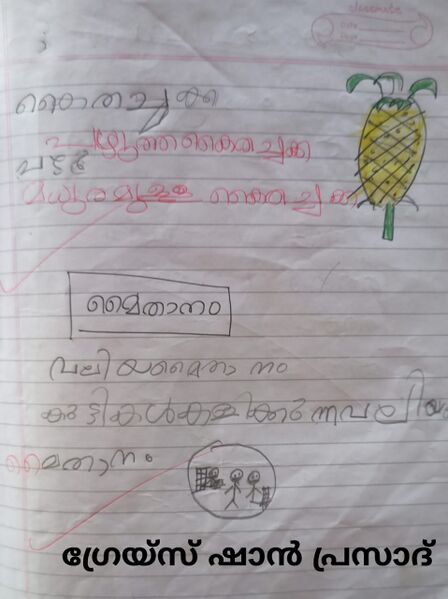 classmate
Date
Page
കൈതച്ചക്ക
പഴുത്ത കൈതച്ചക്ക
മധുരമുള്ള കൈതച്ചക്ക
മൈതാനം
വലിയ മൈതാനം
കുട്ടികൾ കളിക്കുന്ന വലിയ
മൈതാനം
ഗ്രേയ്സ് ഷാൻ പ്രസാദ്